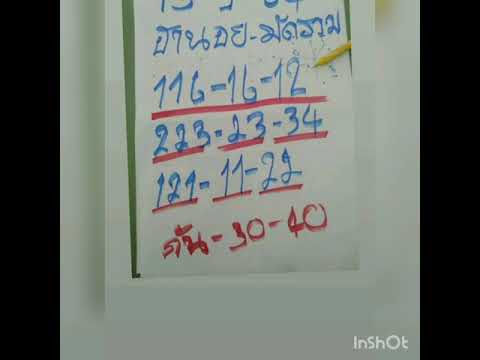 ฮานอย-มัดรวม
116-16-12
223-23-34
121-11-22
กัน-30-40
InShOt